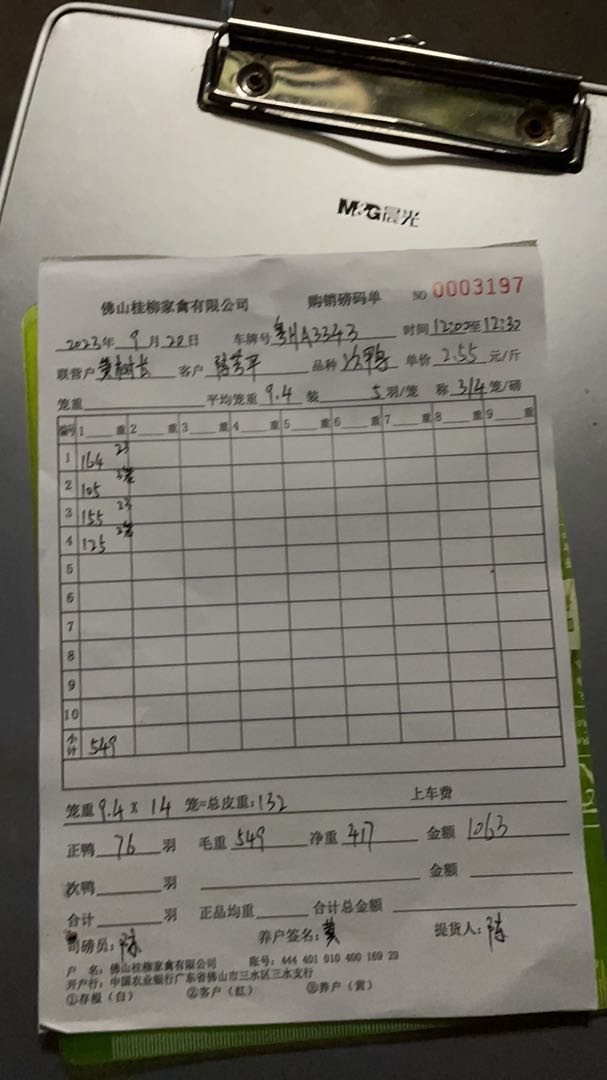 M&G晨光
佛山桂柳家禽有限公司 购销磅码单 NO 0003197
2023年 9月 20日 车牌号 粤HA3343 时间 12:00至12:30
联营户 黄树长 客户 平 品种 次鸭 单价 2.55 元/斤
笼重 平均笼重 9.4 装 5 羽/笼 称 3/4 笼/磅
编号 1 重 2 重 3 重 4 重 5 重 6 重 7 重 8 重 9 重
1 164 23
2 105
3 155 23
4 125
5
6
7
8
9
10
小计 549
笼重 9.4 x 14 笼=总皮重:132 上车费
正鸭 76 羽 毛重 549 净重 417 金额 1063
次鸭 羽 金额
合计 羽 正品均重 合计总金额
司磅员:陈 养户签名:黄 提货人:陈
户 名:佛山桂柳家禽有限公司 账号:444 401 010 400 169 29
开户行:中国农业银行广东省佛山市三水区三水支行
①存根(白) ②客户(红) ③养户(黄)